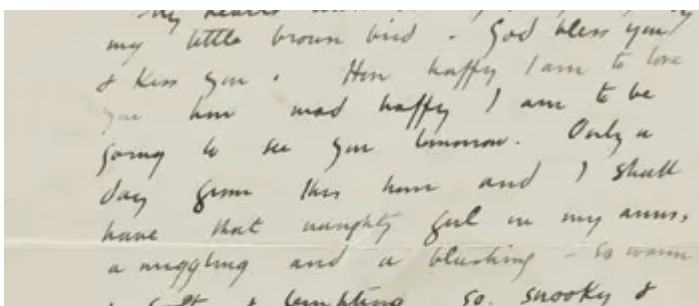 my little brown bird. God bless you
& kiss you. How happy I am to love
you how mad happy I am to be
going to see you tomorrow. Only a
day from this hour and I shall
have that naughty girl in my arms,
a niggling and a blushing – so warm
& soft & tempting so snooky &